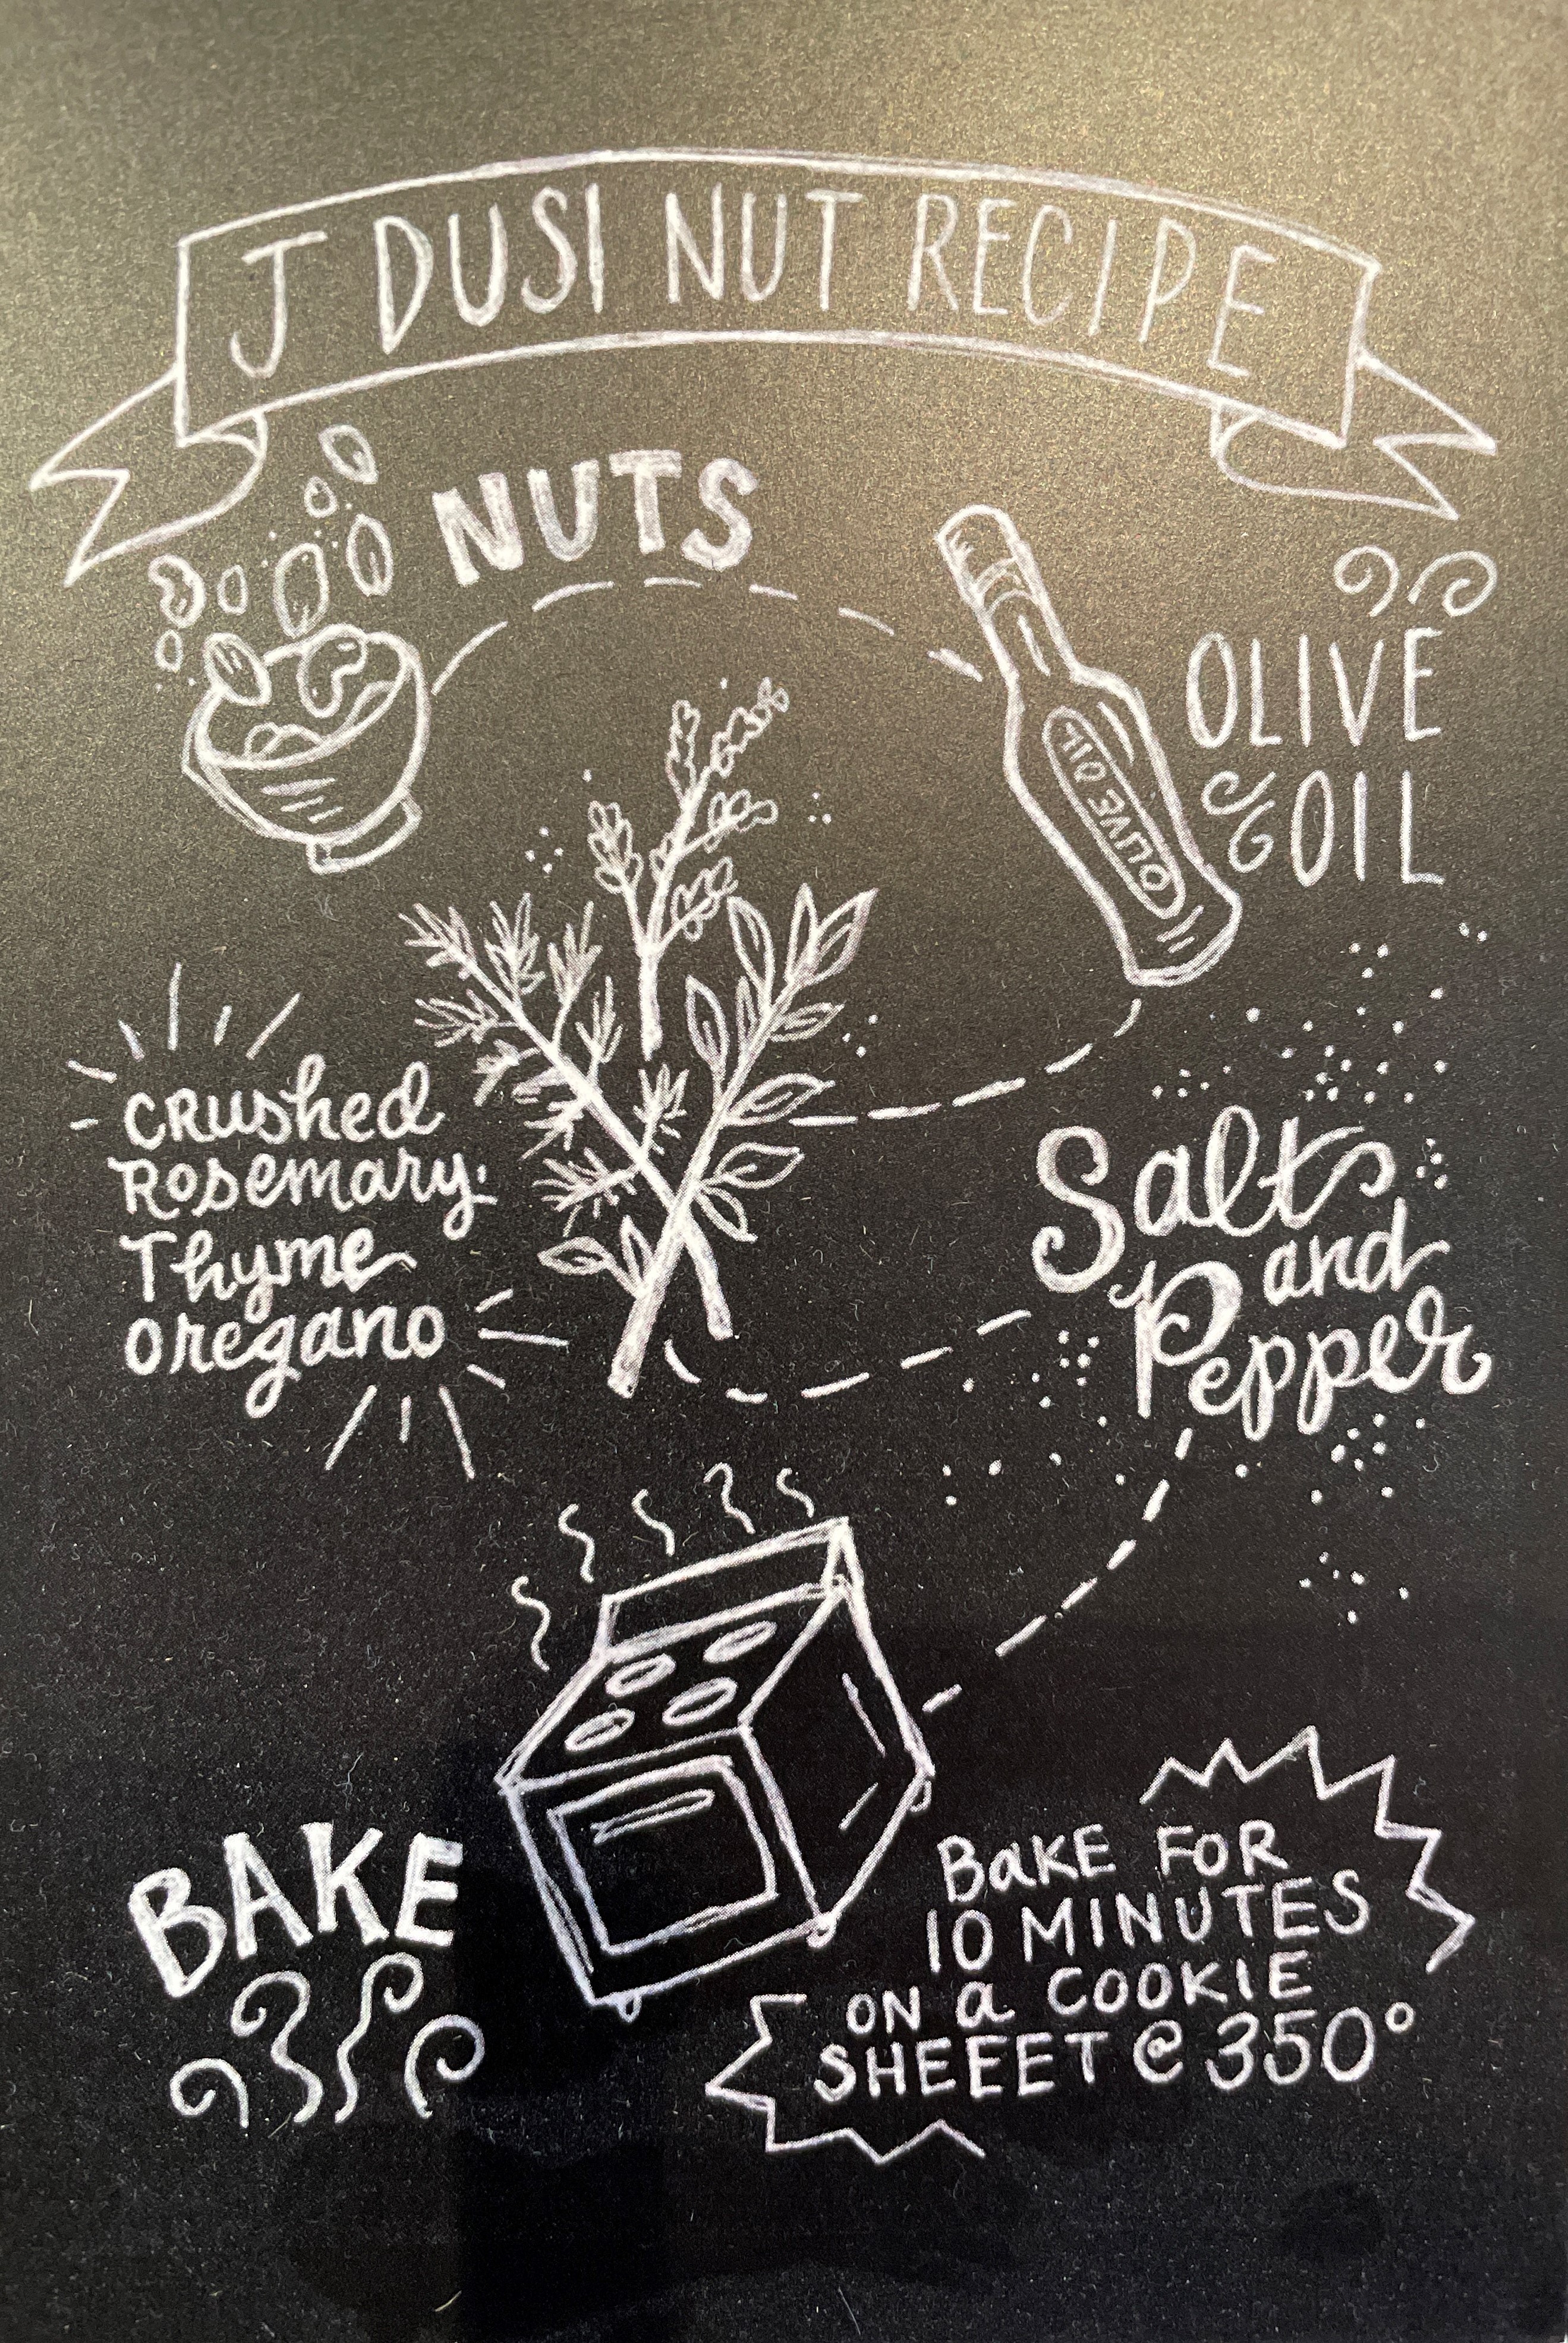 J DUSI NUT RECIPE
NUTS
OLIVE
OIL
OLIVE OIL
CRushed
Rosemary
Thyme
Oregano
Salt
and
Pepper
BAKE
BaKE FOR
10 MINUTES
ON a COOKIE
SHEEET @ 350°